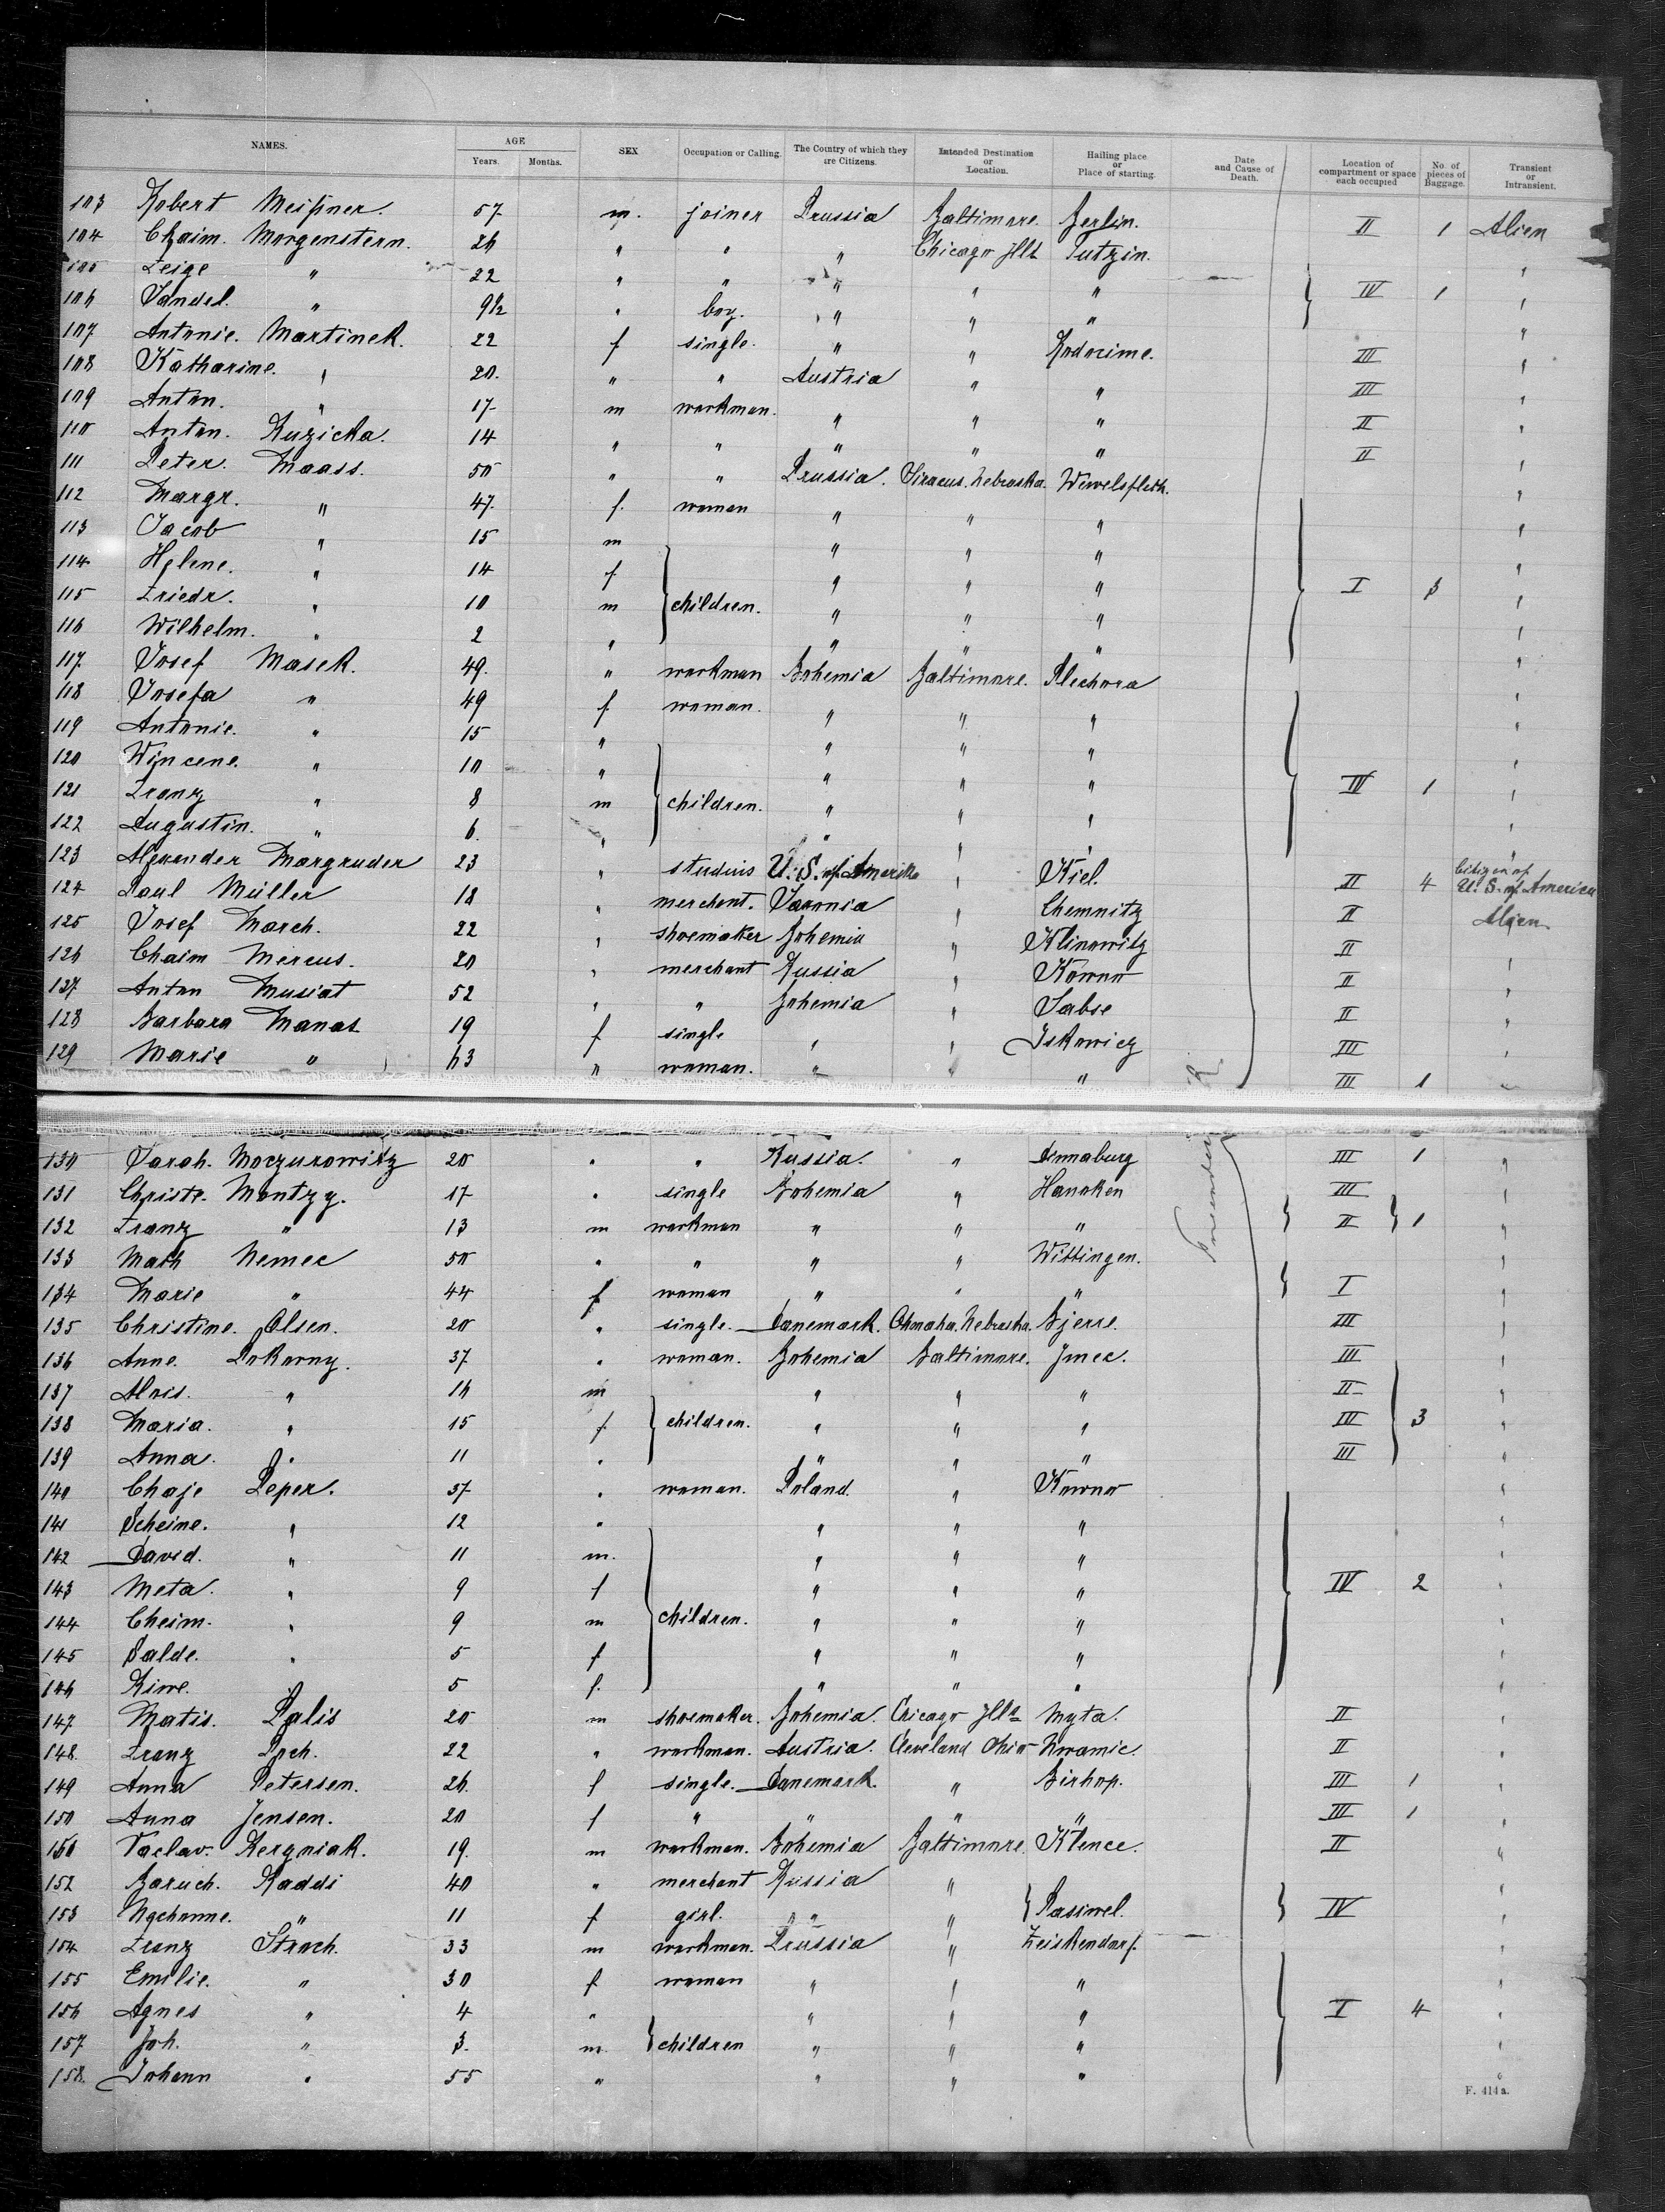 NAMES. AGE SEX Occupation or Calling. The Country of which they are Citizens. Intended Destination or Location. Hailing place or Place of starting. Date and Cause of Death. Location of compartment or space each occupied No. of pieces of Baggage. Transient or Intransient.
Years. Months.
103 Robert Meißner. 57 m. joiner Prussia Baltimore. Berlin. II 1 Alien
104 Chaim. Morgenstern. 26 " " " Chicago Ills Tutzin. "
105 Feige " 22 " " " " " "
106 Sandel. " 9½ " boy. " " " IV 1 "
107 Antonie. Martinek. 22 f single. " " Rodocime. III "
108 Katharine. " 20. " " Austria " " III "
109 Anton. " 17 m workman. " " " II "
110 Anton. Ruzicka. 14 " " " " " II "
111 Peter. Maass. 50 " " Prussia. Siracus. Nebraska. Wewelsfleth. "
112 Margr. " 47. f. woman " " " "
113 Jacob " 15 m " " " "
114 Helene. " 14 f " " " I 3 "
115 Friedr. " 10 m children. " " " "
116 Wilhelm. " 2 " " " " "
117 Josef Masek. 49. " workman Bohemia Baltimore. Plechora "
118 Josefa " 49 f woman. " " " "
119 Antonie. " 15 " " " " "
120 Wincene. " 10 " " " " "
121 Franz " 8 m children. " " " IV 1 "
122 Augustin. " 6. " " " " "
123 Alexander Margruder 23 " studius U. S. of Amerika " Kiel. II 4 Citizen of U. S. of America
124 Paul Müller 18 " merchant. Saxonia " Chemnitz II Alien
125 Josef March. 22 " shoemaker Bohemia " Klinowitz II
126 Chaim Mercus. 20 " merchant Russia " Kowno II "
127 Anton Musiat 52 " " Bohemia " Sabse II "
128 Barbara Manas 19 f single " " Iskowicz III "
129 Marie " 63 " woman. " " " III 1 "
130 Sarah. Moczurowitz 20 " " Russia. " Dennaburg III 1 "
131 Christr. Montzy. 17 " single Bohemia " Hanoken III "
132 Franz " 13 m workman " " " II 1 "
133 Math Nemec 50 " " " " Wittingen. "
134 Marie " 44 f woman " " " I "
135 Christine. Olsen. 20 " single. Danemark. Ohmaha. Nebraska. Bjerre. III "
136 Anne. Pokorny. 37 " woman. Bohemia Baltimore. Jinec. III "
137 Alois. " 16 m " " " II "
138 Maria. " 15 f children. " " " III 3 "
139 Anna. " 11 " " " " III "
140 Chaje Peper. 37 " woman. Poland. " Kowno "
141 Scheine. " 12 " " " " "
142 David. " 11 m. " " " "
143 Meta. " 9 f " " " IV 2 "
144 Cheim. " 9 m children. " " " "
145 Salde. " 5 f " " " "
146 Riwe. " 5 f. " " " "
147 Matis. Palis 20 m shoemaker. Bohemia. Chicago Ills Myta. II "
148. Franz Poch. 22 " workman. Austria. Cleveland Ohio Nwamic. II "
149 Anna Petersen. 26. f single. Danemark. " Birhop. III 1 "
150 Anna Jensen. 20 f " " " " III 1 "
151 Vaclav. Rergniak. 19. m workman. Bohemia Baltimore. Klence. II "
152 Baruch. Raddi 40 " merchant Russia " "
153 Nachanne. " 11 f girl. " " Pasiwel. IV "
154 Franz Stroch. 33 m workman. Prussia " Zeiskendorf. "
155 Emilie. " 30 f woman " " " "
156 Agnes " 4 " " " " I 4 "
157 Joh. " 3. m children " " " "
158. Johann " 55 " " " " "
F. 414a.